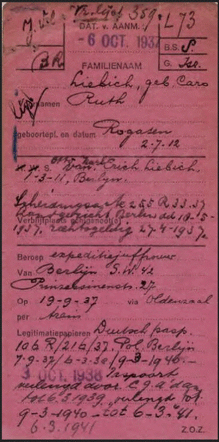 Verlof 359/ L 73
J. vl.
DAT. v. AANM.
- 6 OCT. 1937
B.S. P.
B R
G. Isr.
FAMILIENAAM
Liebich, geb. Caro
Voornamen
Ruth
geboortepl. en datum
Rogasen
2-7-12
Erich Liebich,
1-3-11, Berlijn.
Scheidingsakte 255 R 33.37
Landgericht Berlin dd 19-5-
1937, rechtsgeldig 27-4-1937.
Beroep expeditiejuffrouw.
Van Berlijn S.W. 42
Prinzessinenstr. 27
Op 19-9-37 via Oldenzaal
per trein
Legitimatiepapieren Deutsch pasp.
106 R/216/37. Pol. Berlijn
7-9-37/6-3-38/9-3-1940.
3 OCT. 1938 Paspoort
verlengd door C.G. A'dam
tot 6-3-1939, verlengd tot
9-3-1940 - tot 6-3-'41.
6-3-1941
Z.O.Z.